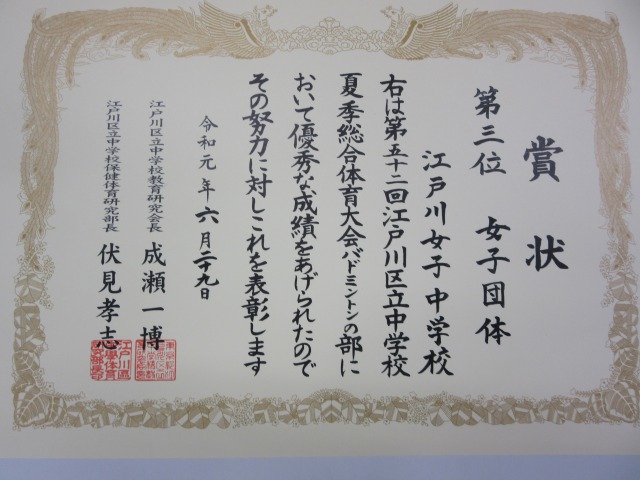 賞状
第三位 女子団体
江戸川女子中学校
右は第五十二回江戸川区立中学校
夏季総合体育大会バドミントンの部に
おいて優秀な成績をあげられたので
その努力に対しこれを表彰します
令和元年六月二十九日
江戸川区立中学校教育研究会長 成瀬一博
江戸川区立中学校保健体育研究部長 伏見孝志